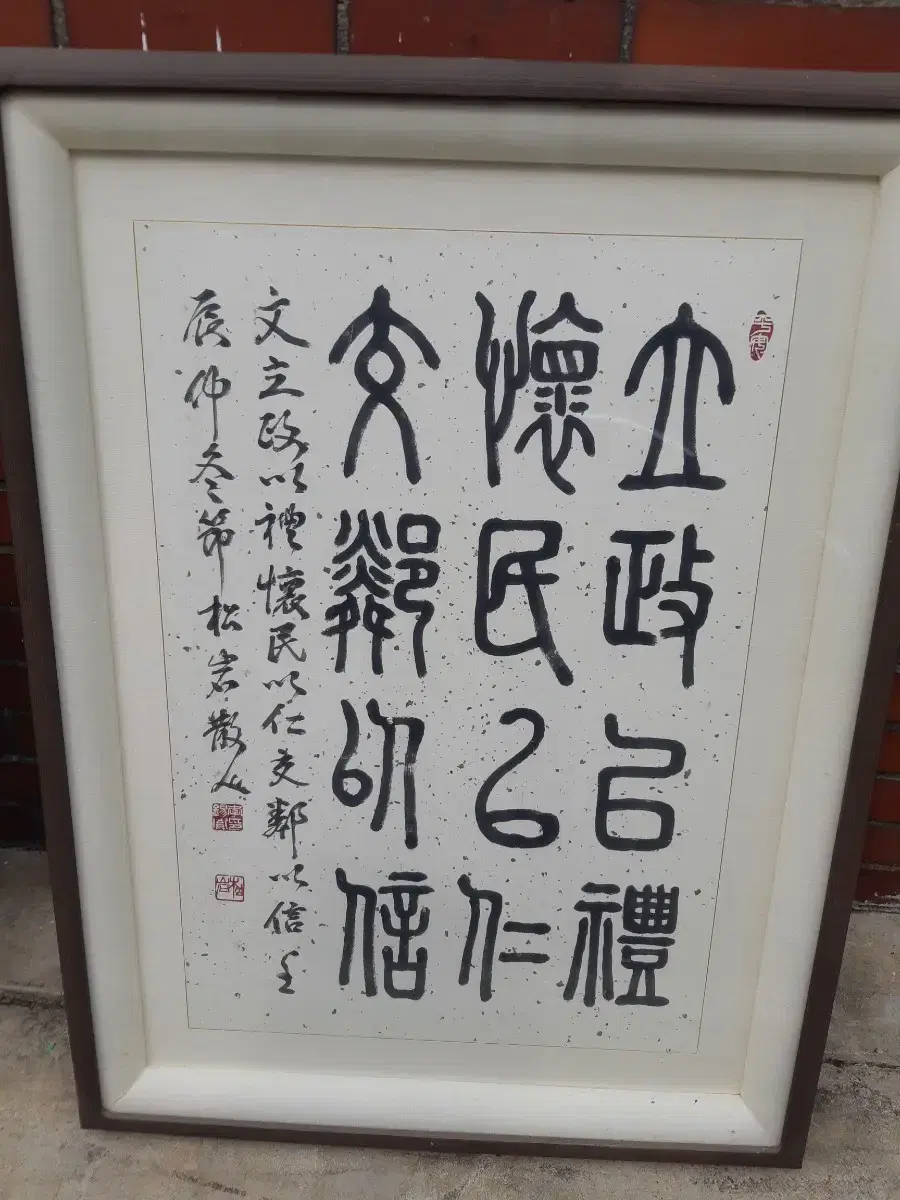 立政㠯禮
懷民㠯仁
交鄰以信
文立政以禮懷民以仁交鄰以信壬
辰仲冬節松岩散人